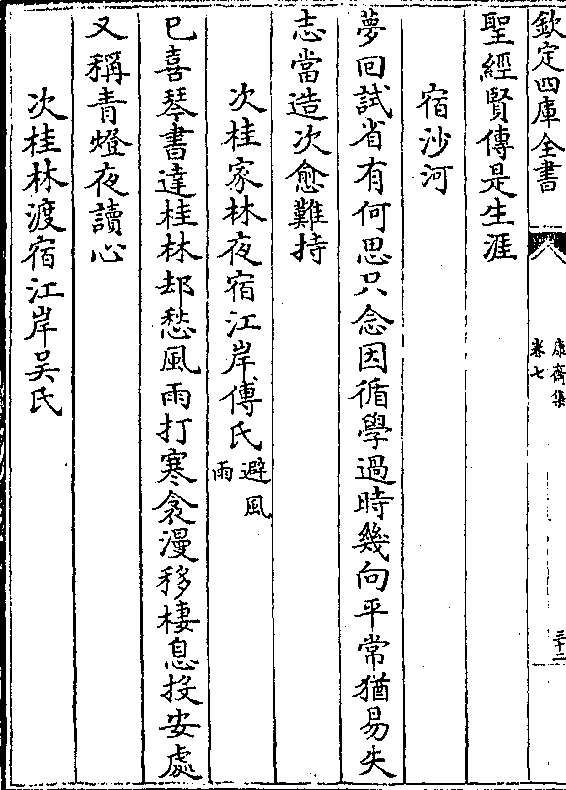 欽定四庫全書
康齋集
卷七
三十二
聖經賢傳是生涯
宿沙河
夢回試省有何思只念因循學過時幾向平常猶易失
志當造次愈難持
次桂家林夜宿江岸傅氏避風雨
已喜琴書達桂林却愁風雨打寒衾漫移棲息投安處
又稱青燈夜讀心
次桂林渡宿江岸吴氏